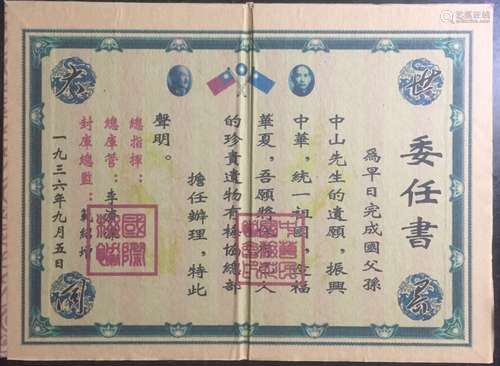 世界
大同
委任書
為早日完成國父孫
中山先生的遺願，振興
中華，統一祖國，福
華夏，吾願將人
的珍貴遺物有梅協總部
擔任辦理，特此
聲明。
總指揮：
總庫管：李
封庫總監：範紹增
一九三六年九月五日
國際